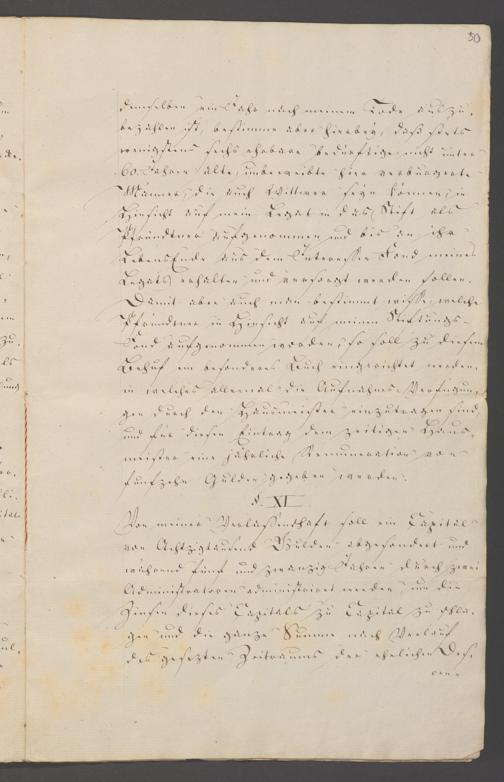 30
demselben ein Jahr nach meinem Tode auszu-
bezahlen ist, bestimme aber hierbey, daß stets
wenigstens sechs ehrbare bedürftige nicht unter
60. Jahren alte, unbeweibte hier verbürgerte
Männer, die auch Wittwer seyn können, in
Hinsicht auf mein Legat in das Stift als
Pfründtner aufgenommen und bis an ihr
Lebens Ende aus dem Interessen Fond meines
Legats erhalten und versorgt werden sollen.
Damit aber auch man bestimmt wisse, welche
Pfründtner in Hinsicht auf meinen Stiftungs-
Fond aufgenommen worden, so soll zu diesem
Behuf ein besonderes Buch eingerichtet werden,
in welches allemal die Aufnahms Verfügun-
gen durch den Hausmeister einzutragen sind,
und für diesen Eintrag dem zeitigen Haus-
meister eine jährliche Remuneration von
fünfzehn Gulden gegeben werden.
§. XI
Von meiner Verlassenschaft soll ein Capital
von Achtzigtausend Gulden abgesondert und
während fünf und zwanzig Jahren durch zwei
Administratoren administrirt werden, um die
Zinsen dieses Capitals zu Capital zu schla-
gen und die ganze Summe nach Verlauf
des gesetzten Zeitraums der ehelichen Desc-
cen-